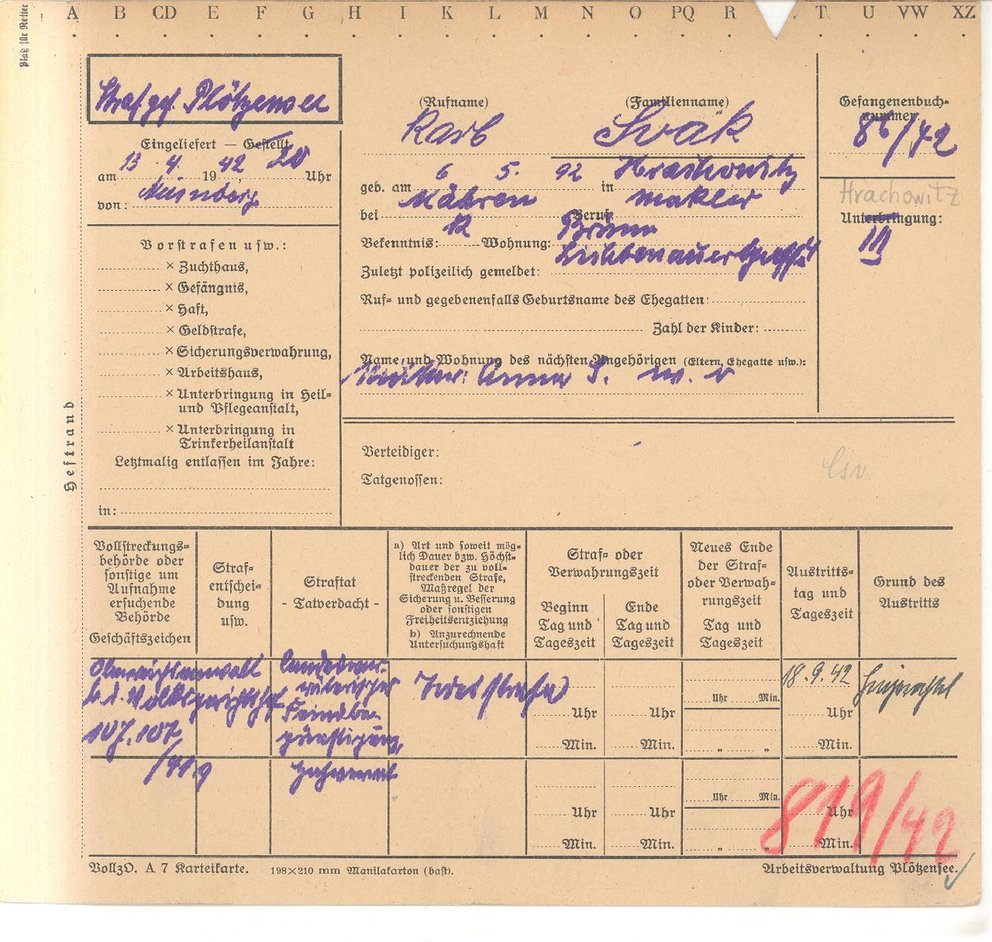 A B CD E F G H I K L M N O PQ R T U VW XZ
Platz für Reiter
Strafgef. Plötzensee
Eingeliefert — Gestellt
am 13. 4. 1942 20 Uhr
von: Nürnberg
(Rufname) (Familienname)
Karl Svák
geb. am 6 5. 92 in Hrachowitz
bei Mähren Beruf: Makler
Bekenntnis: R Wohnung: Brünn
Zuletzt polizeilich gemeldet: Lichtenauergasse 4
Ruf- und gegebenenfalls Geburtsname des Ehegatten:
Zahl der Kinder:
Name und Wohnung des nächsten Angehörigen (Eltern, Ehegatte usw.):
Mutter: Anna S. w. o
Gefangenenbuch-
nummer:
86/42
Hrachowitz
Unterbringung:
III
Vorstrafen usw.:
× Zuchthaus,
× Gefängnis,
× Haft,
× Geldstrafe,
× Sicherungsverwahrung,
× Arbeitshaus,
× Unterbringung in Heil-
und Pflegeanstalt,
× Unterbringung in
Trinkerheilanstalt
Letztmalig entlassen im Jahre:
in:
Heftrand
Verteidiger:
Tatgenossen:
Vollstreckungs-
behörde oder
sonstige um
Aufnahme
ersuchende
Behörde
Geschäftszeichen
Straf-
entschei-
dung
usw.
Straftat
- Tatverdacht -
a) Art und soweit mög-
lich Dauer bzw. Höchst-
dauer der zu voll-
streckenden Strafe,
Maßregel der
Sicherung u. Besserung
oder sonstigen
Freiheitsentziehung
b) Anzurechnende
Untersuchungshaft
Straf- oder
Verwahrungszeit
Beginn
Tag und
Tageszeit
Ende
Tag und
Tageszeit
Neues Ende
der Straf-
oder Verwah-
rungszeit
Tag und
Tageszeit
Austritts-
tag und
Tageszeit
Grund des
Austritts
Oberreichsanwalt
b. d. Volksgerichtshof
10 J. 107
Landesver-
räterischer
Feindbe-
günstigung,
Hochverrat
Todesstrafe
18. 9. 42
Hingerichtet
Uhr Uhr Uhr Min. Uhr
Min. Min. " " Min.
Uhr Uhr Uhr Min. Uhr
Min. Min. " " Min.
819/42
VollzO. A 7 Karteikarte. 198×210 mm Manilakarton (haft). Arbeitsverwaltung Plötzensee.